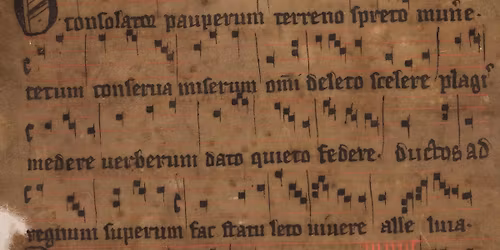 O consolator pauperum terreno spreto mun̄e.
tetum conserua miserum om̄i deleto scelere plagis
medere uerberum dato quieto federe. ductos ad
regnum superum fac statu leto uiuere alle luia.